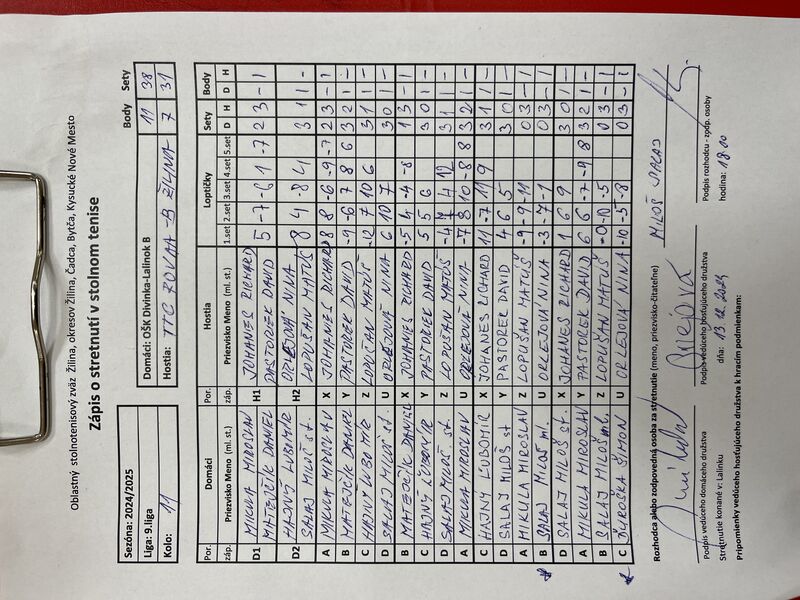 Oblastný stolnotenisový zväz Žilina, okresov Žilina, Čadca, Bytča, Kysucké Nové Mesto
Zápis o stretnutí v stolnom tenise
Body Sety
Sezóna: 2024/2025 Domáci: OŠK Divinka-Lalinok B 11 38
Liga: 9.liga Hostia: TTC ROVAA-B ŽILINA 7 31
Kolo: 11
Por. Domáci Por. Hostia Loptičky Sety Body
záp. Priezvisko Meno (ml. st.) záp. Priezvisko Meno (ml. st.) 1.set 2.set 3.set 4.set 5.set D H D H
D1 MIKULA MIROSLAV H1 JOHANES RICHARD 5 -7 -6 1 -7 2 3 - 1
MATEJČÍK DANIEL PASTOREK DAVID
D2 HAJNÝ ĽUBOMÍR H2 ORLEJOVÁ NINA 8 4 -8 4 3 1 1 -
SALAJ MILOŠ st. LOPUŠAN MATÚŠ
A MIKULA MIROSLAV X JOHANES RICHARD 8 8 -6 -9 -7 2 3 - 1
B MATEJČÍK DANIEL Y PASTOREK DAVID -9 -6 7 8 6 3 2 1 -
C HAJNÝ ĽUBOMÍR Z LOPUŠAN MATÚŠ -12 7 10 6 3 1 1 -
D SALAJ MILOŠ st. U ORLEJOVÁ NINA 6 10 7 3 0 1 -
B MATEJČÍK DANIEL X JOHANES RICHARD -5 4 -4 -8 1 3 - 1
C HAJNÝ ĽUBOMÍR Y PASTOREK DAVID 5 5 6 3 0 1 -
D SALAJ MILOŠ st. Z LOPUŠAN MATÚŠ -4 7 4 12 3 1 1 -
A MIKULA MIROSLAV U ORLEJOVÁ NINA -7 8 10 -8 8 3 2 1 -
C HAJNÝ ĽUBOMÍR X JOHANES RICHARD 11 -7 11 9 3 1 1 -
D SALAJ MILOŠ st Y PASTOREK DAVID 4 6 5 3 0 1 -
A MIKULA MIROSLAV Z LOPUŠAN MATÚŠ -9 -9 -11 0 3 - 1
B SALAJ MILOŠ ml. U ORLEJOVÁ NINA -3 -7 -1 0 3 - 1
D SALAJ MILOŠ st. X JOHANES RICHARD 1 6 9 3 0 1 -
A MIKULA MIROSLAV Y PASTOREK DAVID 6 6 -7 -9 8 3 2 1 -
B SALAJ MILOŠ ml. Z LOPUŠAN MATÚŠ -0 -10 -5 0 3 - 1
C ĎUROŠKA ŠIMON U ORLEJOVÁ NINA -10 -5 -8 0 3 - 1
Rozhodca alebo zodpovedná osoba za stretnutie (meno, priezvisko-čitateľne) MILOŠ SALAJ
Podpis vedúceho domáceho družstva Podpis vedúceho hosťujúceho družstva Podpis rozhodcu - zodp. osoby
Stretnutie konané v: Lalinku dňa: 13.12.2024 hodina: 18.00
Pripomienky vedúceho hosťujúceho družstva k hracím podmienkam: